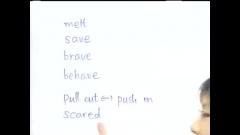 melt
save
brave
behave
pull out ↔ push in
scared